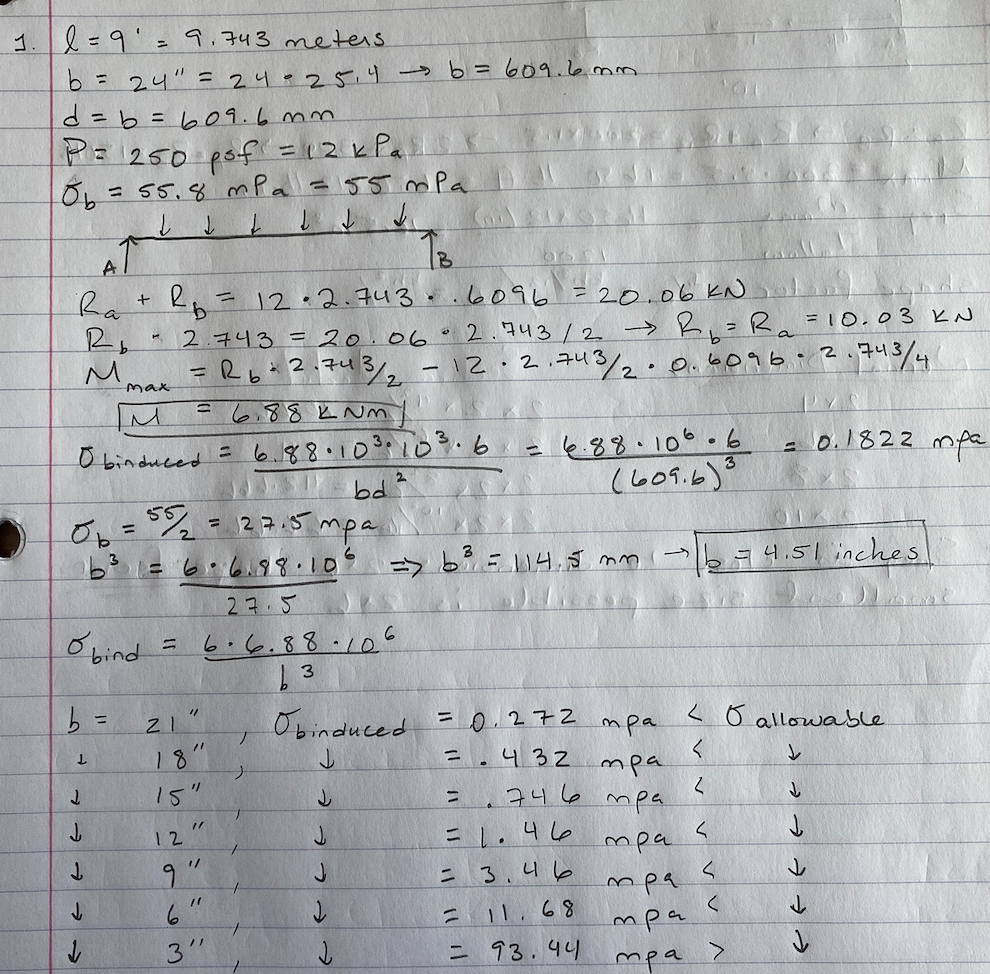 1. l = 9' = 9.743 meters
b = 24" = 24 • 25.4 → b = 609.6 mm
d = b = 609.6 mm
P = 250 psf = 12 kPa
σb = 55.8 mPa = 55 mPa
↓ ↓ ↓ ↓ ↓ ↓
A B
Ra + Rb = 12 • 2.743 • .6096 = 20.06 kN
Rb • 2.743 = 20.06 • 2.743/2 → Rb = Ra = 10.03 kN
Mmax = Rb • 2.743/2 - 12 • 2.743/2 • 0.6096 • 2.743/4
M = 6.88 kNm
σbinduced = 6.88 • 10³ • 10³ • 6 / bd² = 6.88 • 10⁶ • 6 / (609.6)³ = 0.1822 mpa
σb = 55/2 = 27.5 mpa
b³ = 6 • 6.98 • 10⁶ / 27.5 ⇒ b³ = 114.5 mm → b = 4.51 inches
σbind = 6 • 6.88 • 10⁶ / b³
b = 21", σbinduced = 0.272 mpa < σ allowable
↓ 18", ↓ = .432 mpa < ↓
↓ 15", ↓ = .746 mpa < ↓
↓ 12", ↓ = 1.46 mpa < ↓
↓ 9", ↓ = 3.46 mpa < ↓
↓ 6", ↓ = 11.68 mpa < ↓
↓ 3", ↓ = 93.44 mpa > ↓